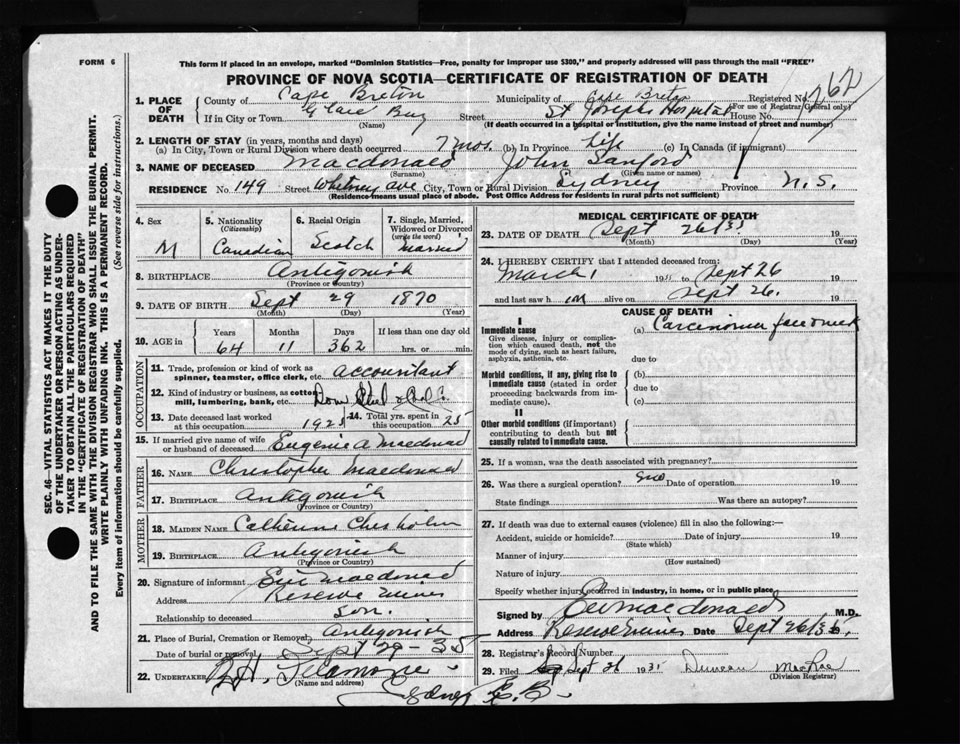 FORM 6
This form if placed in an envelope, marked "Dominion Statistics—Free, penalty for improper use $300," and properly addressed will pass through the mail "FREE"
PROVINCE OF NOVA SCOTIA—CERTIFICATE OF REGISTRATION OF DEATH
1. PLACE OF DEATH County of Cape Breton Municipality of Cape Breton Registered No. 762
(For use of Registrar General only)
If in City or Town Glace Bay Street St Joseph Hospital House No.
(Name) (If death occurred in a hospital or institution, give the name instead of street and number)
2. LENGTH OF STAY (in years, months and days)
(a) In City, Town or Rural Division where death occurred 7 mos. (b) In Province Life (c) In Canada (if immigrant)
3. NAME OF DECEASED Macdonald John Sanford
(Surname) (Given name or names)
RESIDENCE No. 149 Street Whitney ave City, Town or Rural Division Sydney Province N.S.
(Residence means usual place of abode. Post Office Address for residents in rural parts not sufficient)
4. Sex M
5. Nationality (Citizenship) Canadian
6. Racial Origin Scotch
7. Single, Married, Widowed or Divorced (write the word) Married
8. BIRTHPLACE Antigonish
(Province or Country)
9. DATE OF BIRTH Sept 29 1870
(Month) (Day) (Year)
10. AGE in Years 64 Months 11 Days 362 If less than one day old hrs. or min.
OCCUPATION
11. Trade, profession or kind of work as spinner, teamster, office clerk, etc. accountant
12. Kind of industry or business, as cotton mill, lumbering, bank, etc. Dom Steel & Coal Co
13. Date deceased last worked at this occupation 1925
14. Total yrs. spent in this occupation 25
15. If married give name of wife or husband of deceased Eugenie A Macdonald
FATHER
16. NAME Christopher Macdonald
17. BIRTHPLACE Antigonish
(Province or Country)
MOTHER
18. MAIDEN NAME Catherine Chisholm
19. BIRTHPLACE Antigonish
(Province or Country)
20. Signature of informant Macdonald
Address Reserve Mines
Relationship to deceased Son.
21. Place of Burial, Cremation or Removal Antigonish
Date of burial or removal Sept 29-35
22. UNDERTAKER
(Name and address)
Sydney C.B.
MEDICAL CERTIFICATE OF DEATH
23. DATE OF DEATH Sept 26/35 19
(Month) (Day) (Year)
24. I HEREBY CERTIFY that I attended deceased from:
March 1 19 to Sept 26 19
and last saw h im alive on Sept 26. 19
CAUSE OF DEATH
I
Immediate cause
Give disease, injury or complication which caused death, not the mode of dying, such as heart failure, asphyxia, asthenia, etc.
(a) Carcinoma
due to
Morbid conditions, if any, giving rise to immediate cause (stated in order proceeding backwards from immediate cause).
(b)
due to
(c)
II
Other morbid conditions (if important) contributing to death but not causally related to immediate cause.
25. If a woman, was the death associated with pregnancy?
26. Was there a surgical operation? Date of operation 19
State findings Was there an autopsy?
27. If death was due to external causes (violence) fill in also the following:—
Accident, suicide or homicide? Date of injury 19
(State which)
Manner of injury
(How sustained)
Nature of injury
Specify whether injury occurred in industry, in home, or in public place
Signed by Macdonald M.D.
Address Reserve Mines Date Sept 26/35
28. Registrar's Record Number
29. Filed Sept 26 1935 Duncan MacRae
(Division Registrar)
SEC. 46—VITAL STATISTICS ACT MAKES IT THE DUTY
OF THE UNDERTAKER OR PERSON ACTING AS UNDER-
TAKER TO OBTAIN ALL THE PARTICULARS REQUIRED
IN THE "CERTIFICATE OF REGISTRATION OF DEATH"
AND TO FILE THE SAME WITH THE DIVISION REGISTRAR WHO SHALL ISSUE THE BURIAL PERMIT.
WRITE PLAINLY WITH UNFADING INK. THIS IS A PERMANENT RECORD.
Every item of information should be carefully supplied. (See reverse side for instructions.)